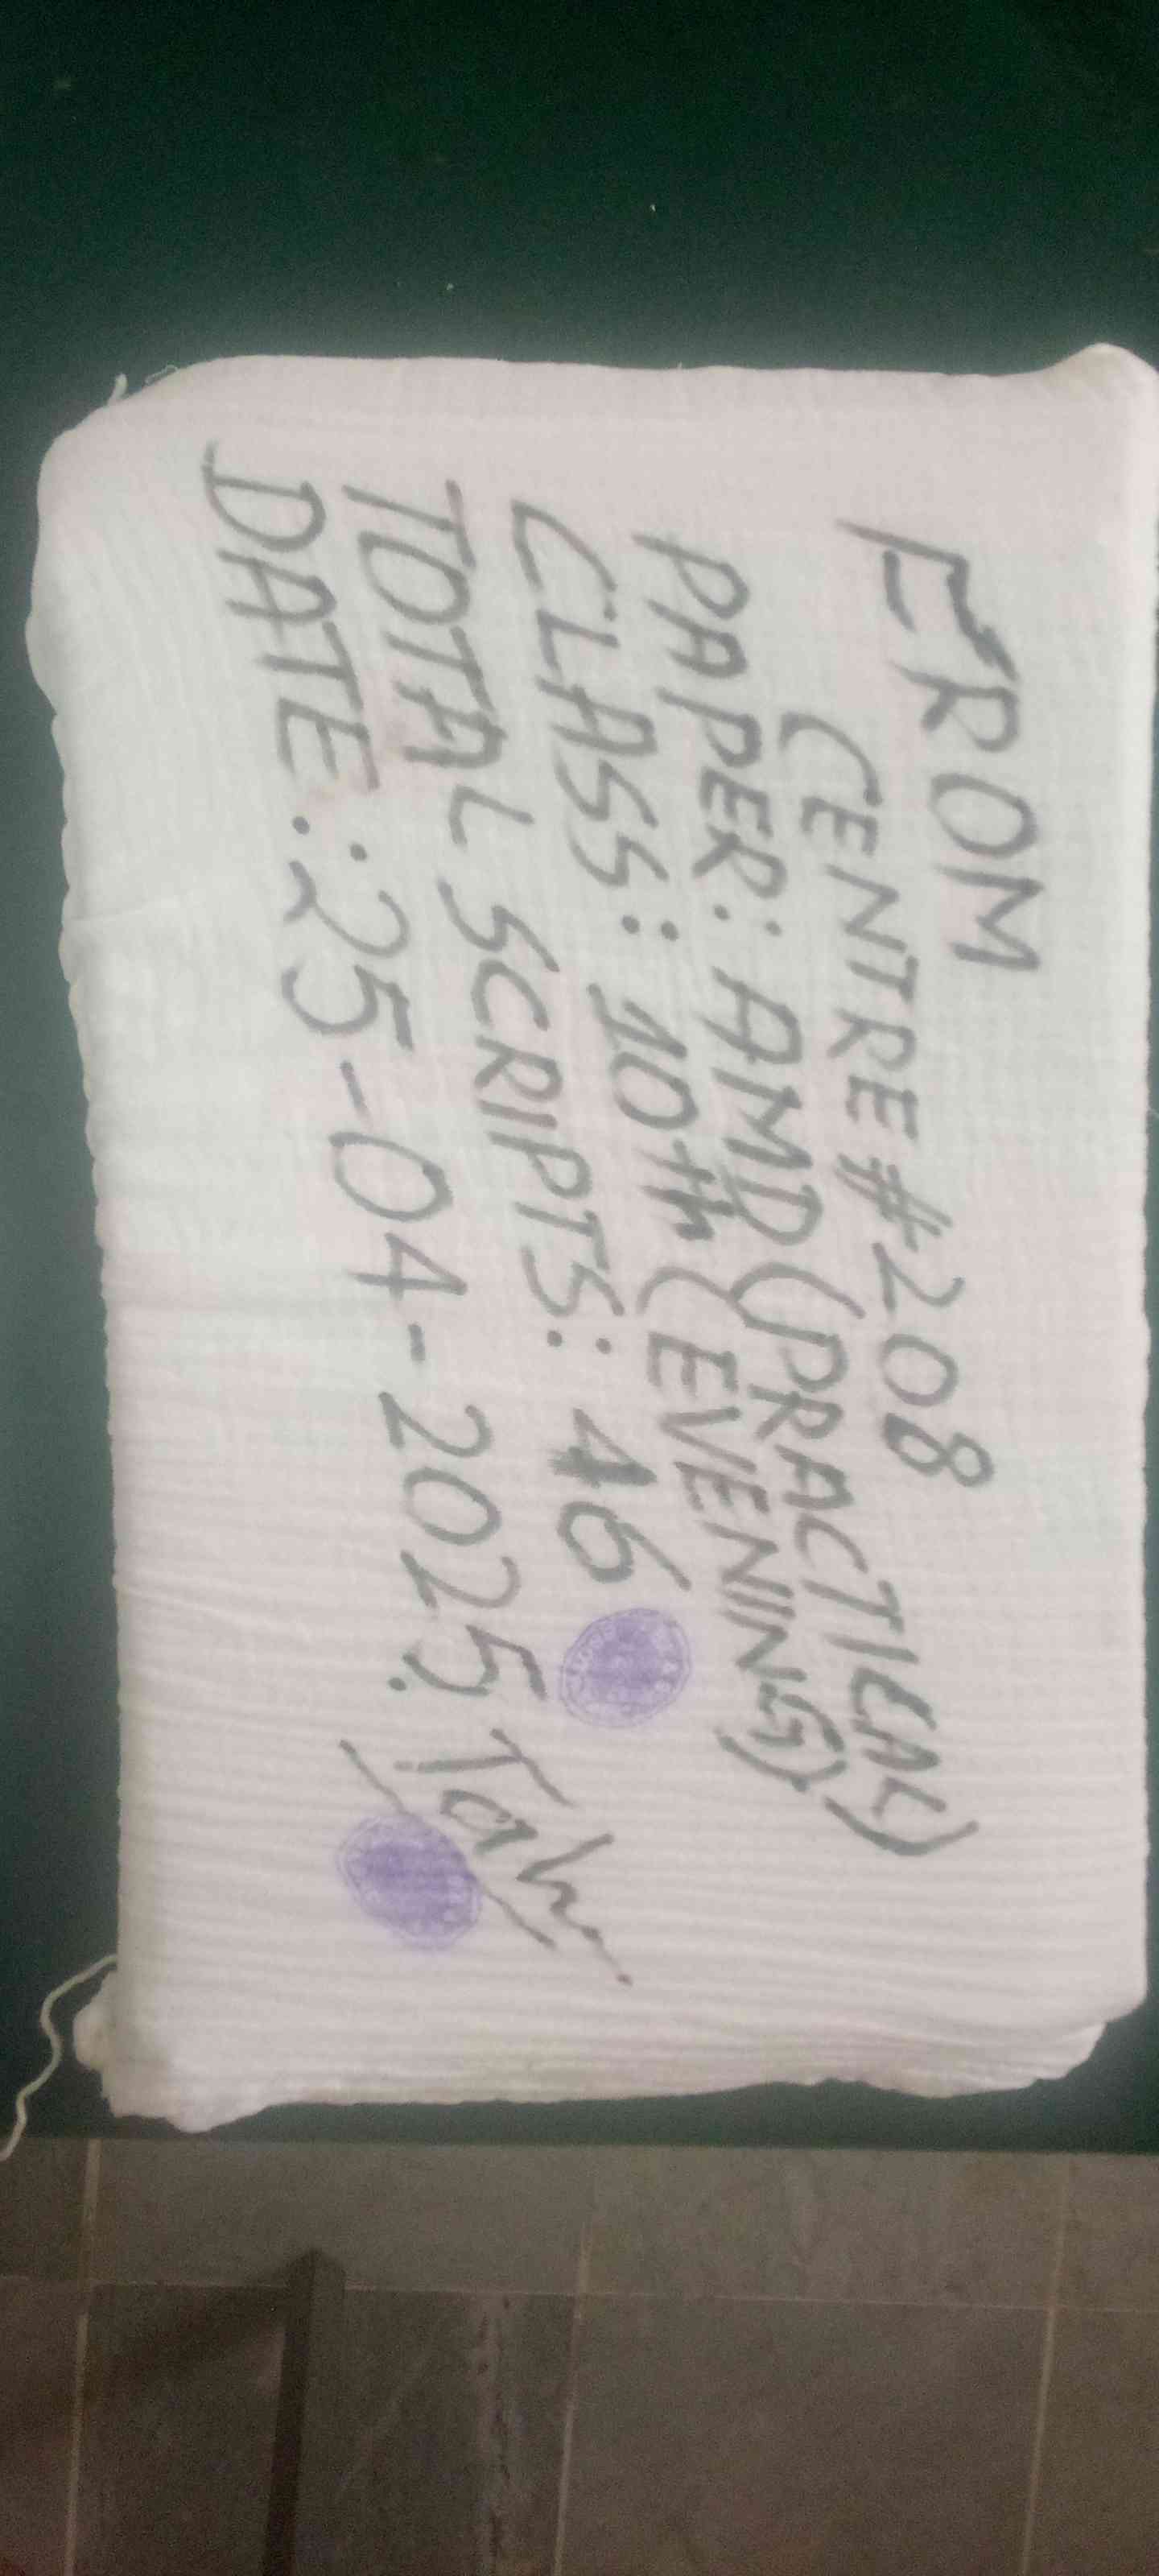 FROM
CENTRE # 208
PAPER: AMD (PRACTICAL)
CLASS: 10th (EVENING)
TOTAL SCRIPTS: 46
DATE: 25-04-2025